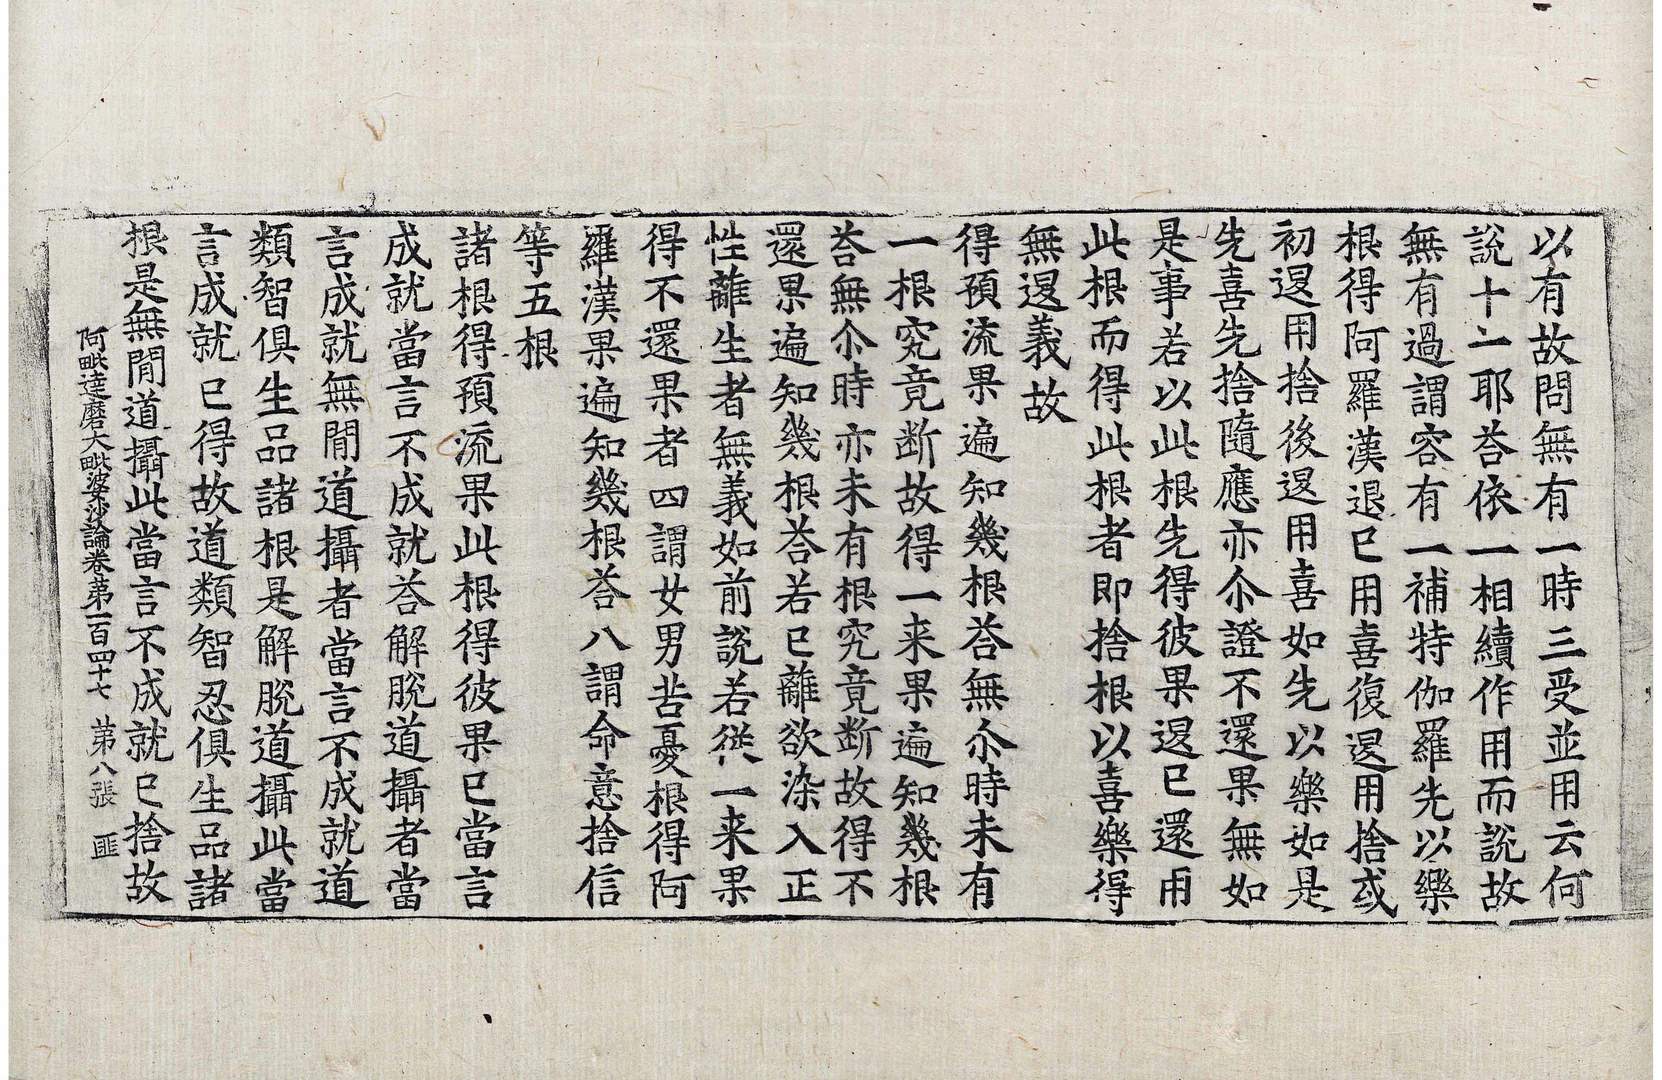 以有故問無有一時三受並用云何
說十二耶荅依一相續作用而說故
無有過謂容有一補特伽羅先以樂
根得阿羅漢退已用喜復退用捨或
初退用捨後退用喜如先以樂如是
先喜先捨隨應亦尒證不還果無如
是事若以此根先得彼果退已還用
此根而得此根者即捨根以喜樂得
無退義故
得預流果遍知幾根荅無尒時未有
一根究竟断故得一来果遍知幾根
荅無尒時亦未有根究竟断故得不
還果遍知幾根荅若已離欲染入正
性離生者無義如前說若從一来果
得不還果者四謂女男苦憂根得阿
羅漢果遍知幾根荅八謂命意捨信
等五根
諸根得預流果此根得彼果已當言
成就當言不成就荅解脫道攝者當
言成就無閒道攝者當言不成就道
類智俱生品諸根是解脫道攝此當
言成就已得故道類智忍俱生品諸
根是無閒道攝此當言不成就已捨故
阿毗達磨大毗婆沙論卷第一百四十七 第八張 匪